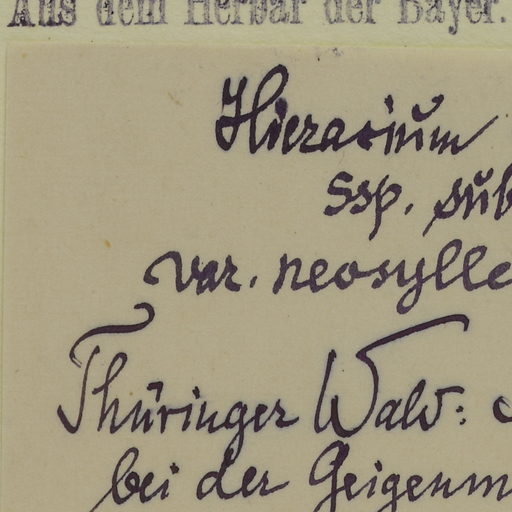 Aus dem Herbar der Bayer.
Hieracium
ssp. sub
var. neosylle
Thüringer Wald:
bei der Geigenm